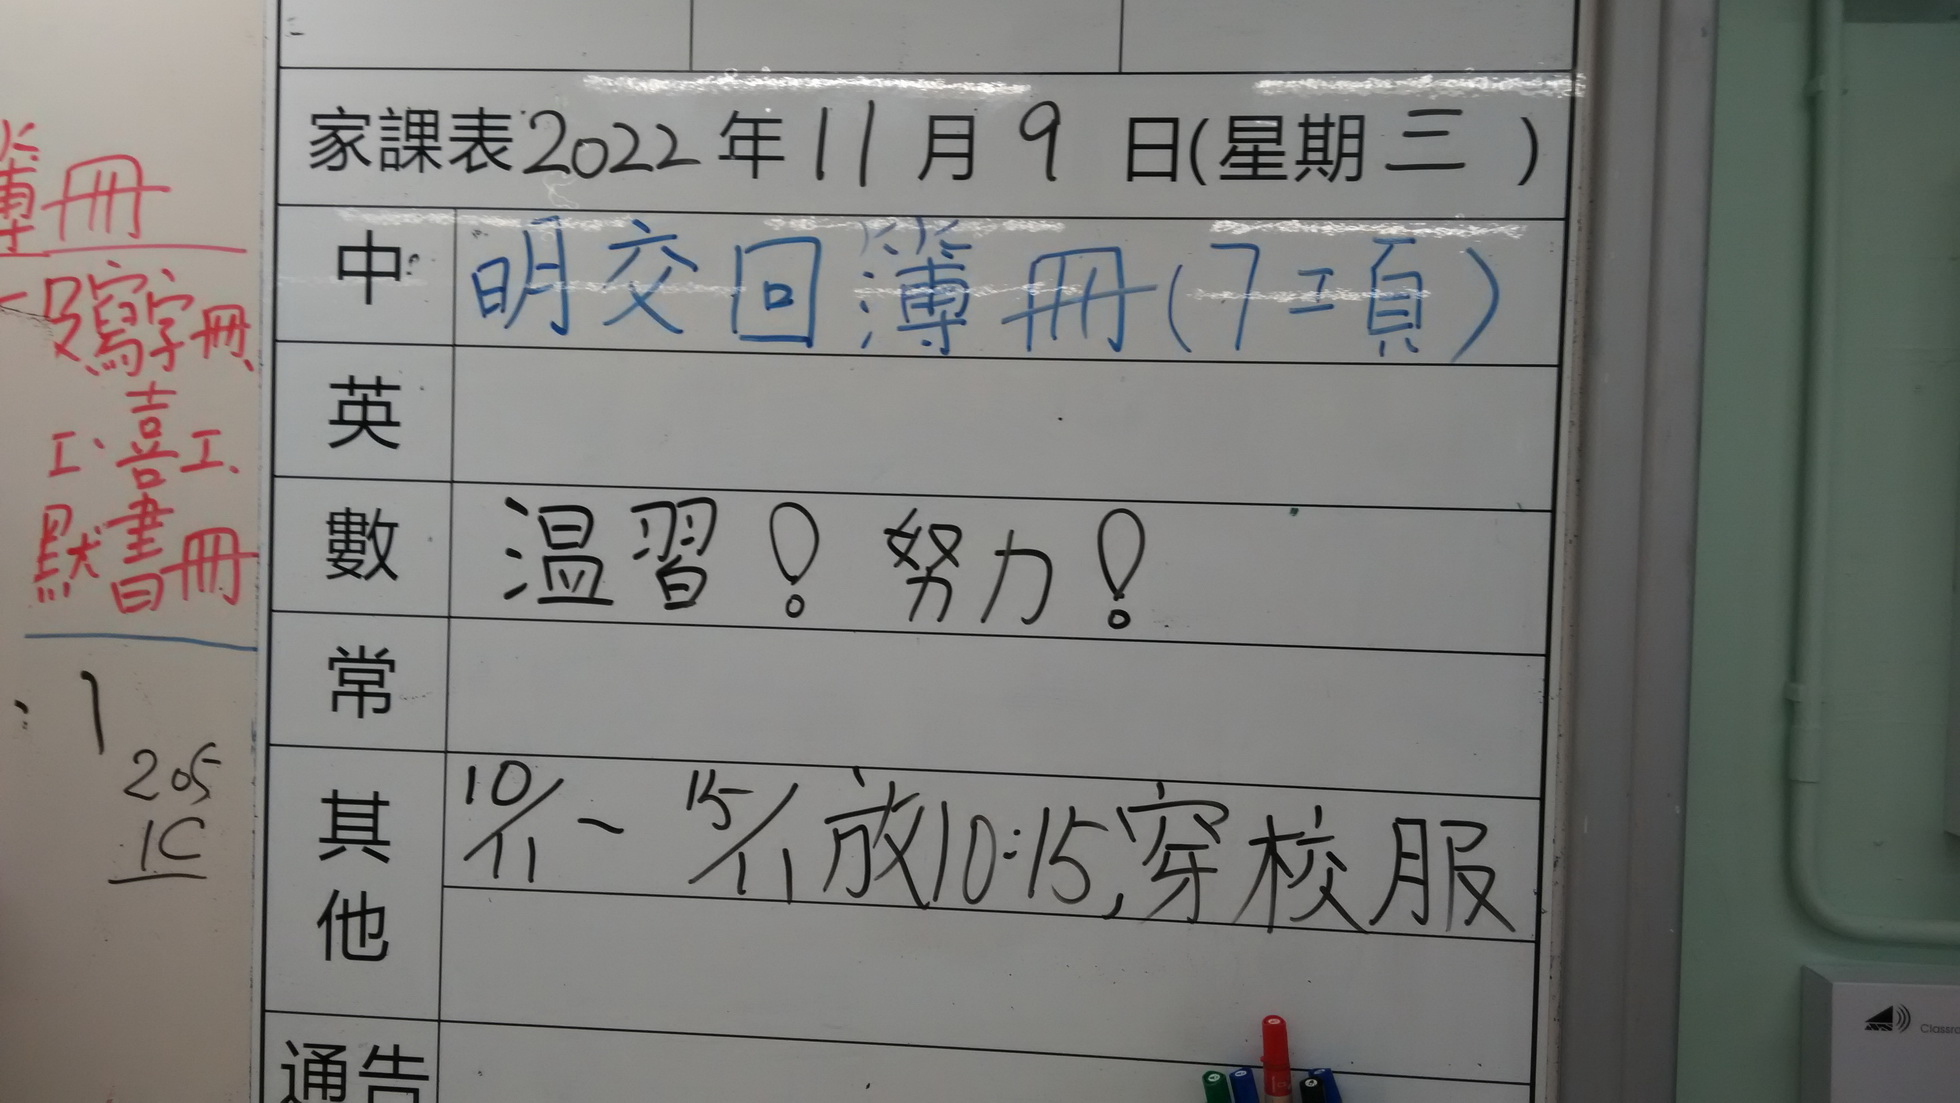 簿冊
寫字冊、
工、喜工、
默書冊
205
1C
家課表2022年11月9日(星期三)
中 明交回簿冊(7工頁)
英
數 温習！努力！
常
其他 10/11~15/11放10:15,穿校服
通告